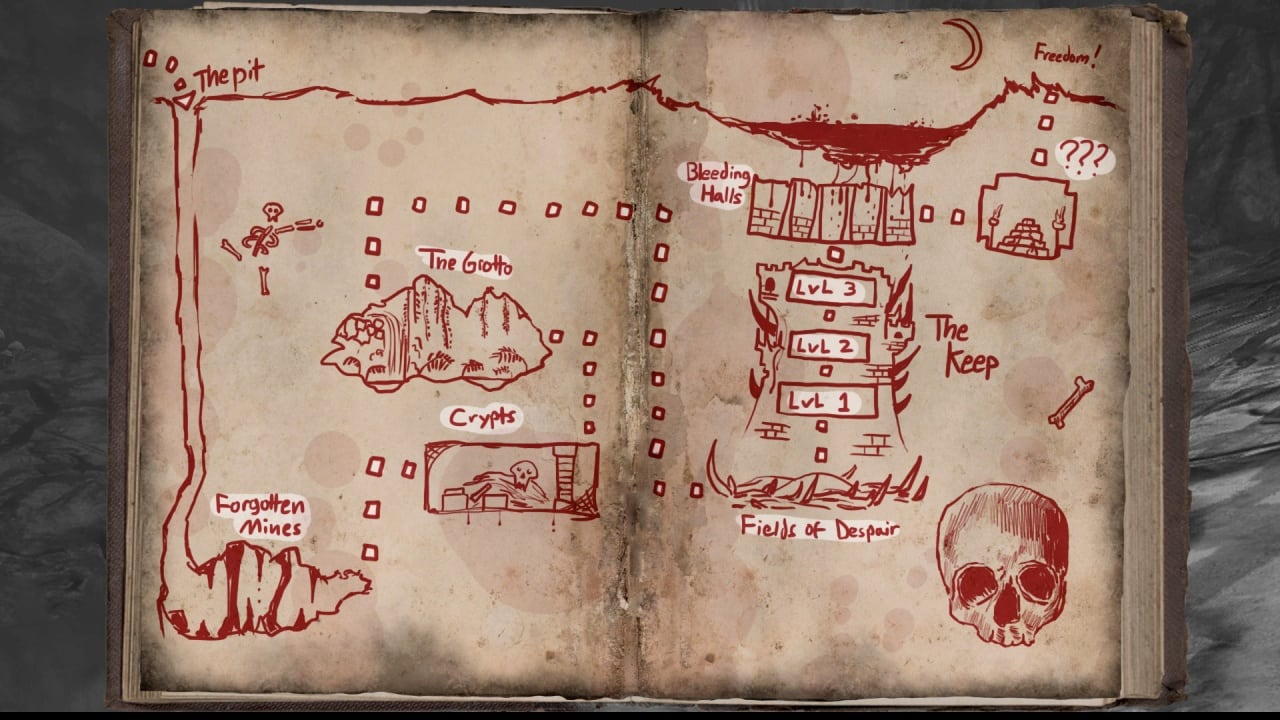 The pit
Freedom!
???
Bleeding
Halls
The Grotto
LvL 3
The
Keep
LvL 2
LvL 1
Crypts
Forgotten
Mines
Fields of Despair